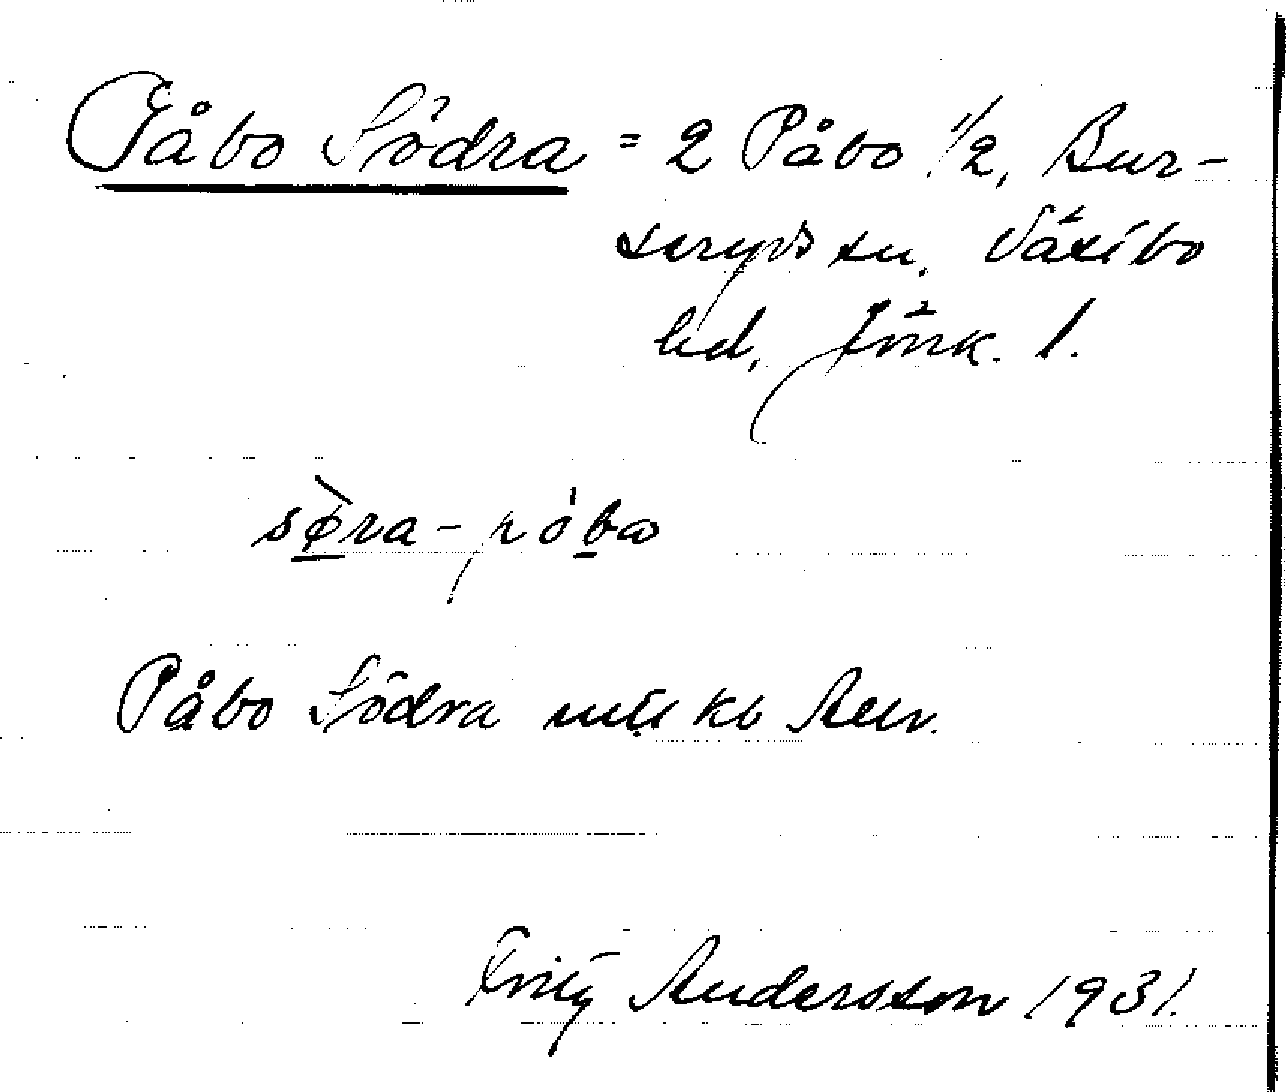 Påbo Södra = 2 Påbo 1/2, Bur-
seryds sn, Västbo
hd, Jönk. l.
sø̀ra-póbo
Påbo Södra enl kb Allm.
Fritz Andersson 1931.